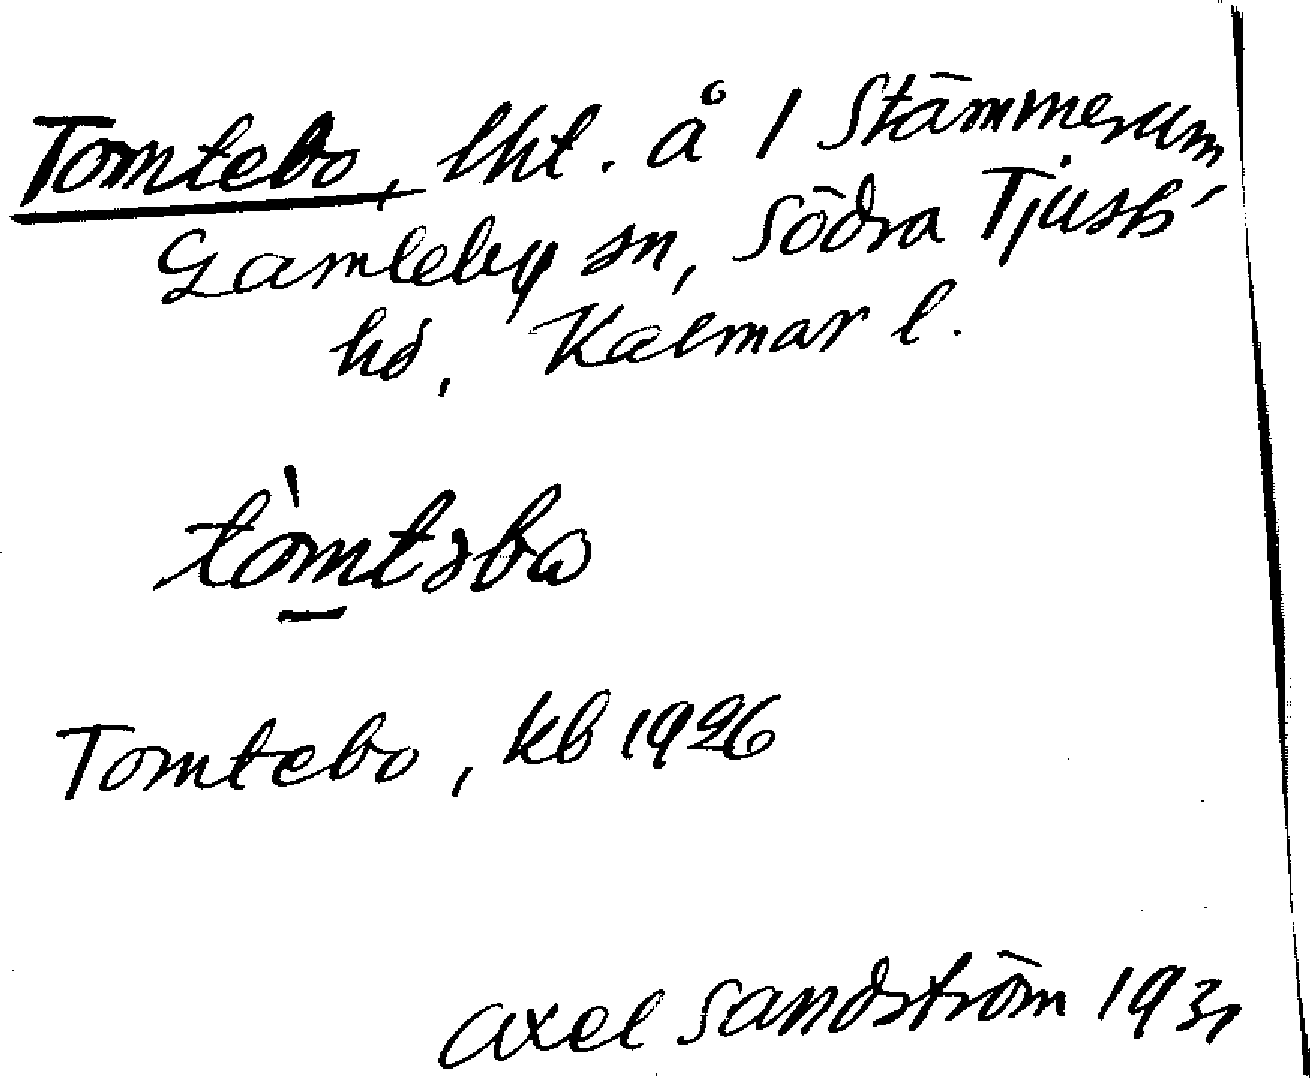 Tomtebo, lht. å 1 Stämmerum
Gamleby sn, Södra Tjusts
hd, Kalmar l.
tòmtəbo
Tomtebo, kb 1926
Axel Sandström 1931